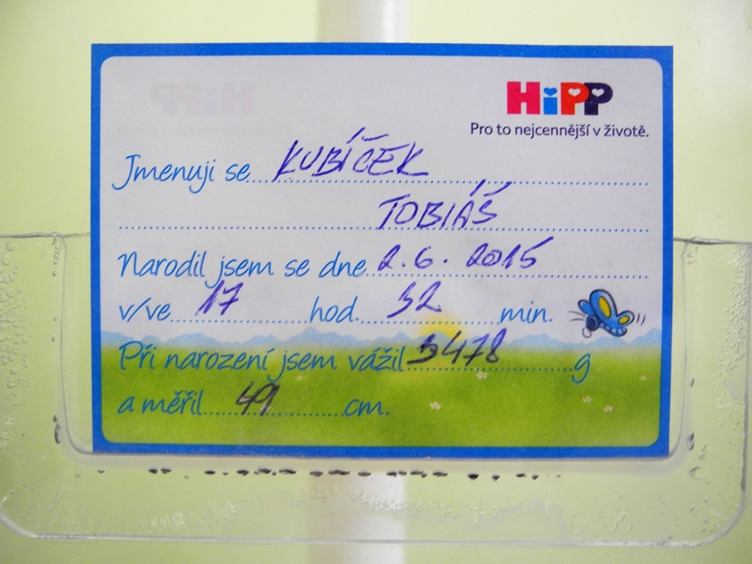 HiPP
Pro to nejcennější v životě.
Jmenuji se KUBÍČEK
TOBIÁŠ
Narodil jsem se dne 2.6.2015
v/ve 17 hod. 32 min.
Při narození jsem vážil 3478 g
a měřil 49 cm.